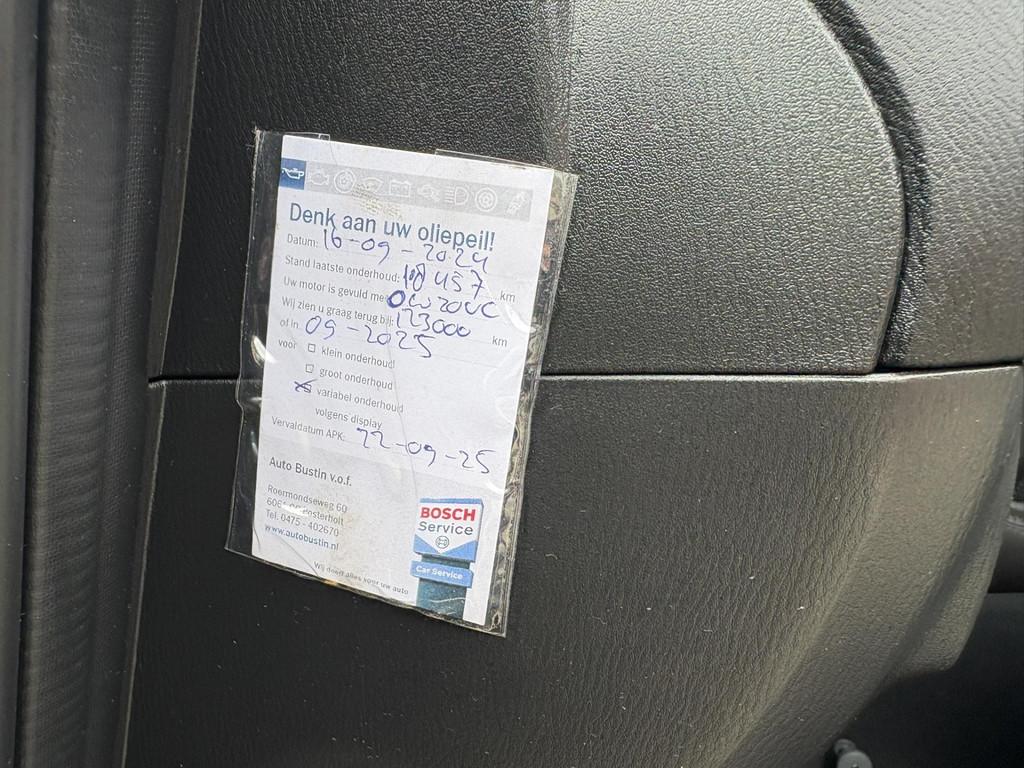 Denk aan uw oliepeil!
Datum: 16-09-2024
Stand laatste onderhoud: 457 km
Uw motor is gevuld met 0W20VC
Wij zien u graag terug bij: 123000 km
of in 09-2025
voor klein onderhoud
groot onderhoud
variabel onderhoud
volgens display
Vervaldatum APK: 22-09-25
Auto Bustin v.o.f.
Roermondseweg 60
Posterholt
Tel. 0475 - 402670
www.autobustin.nl
Wij doen alles voor uw auto
BOSCH
Service
Car Service